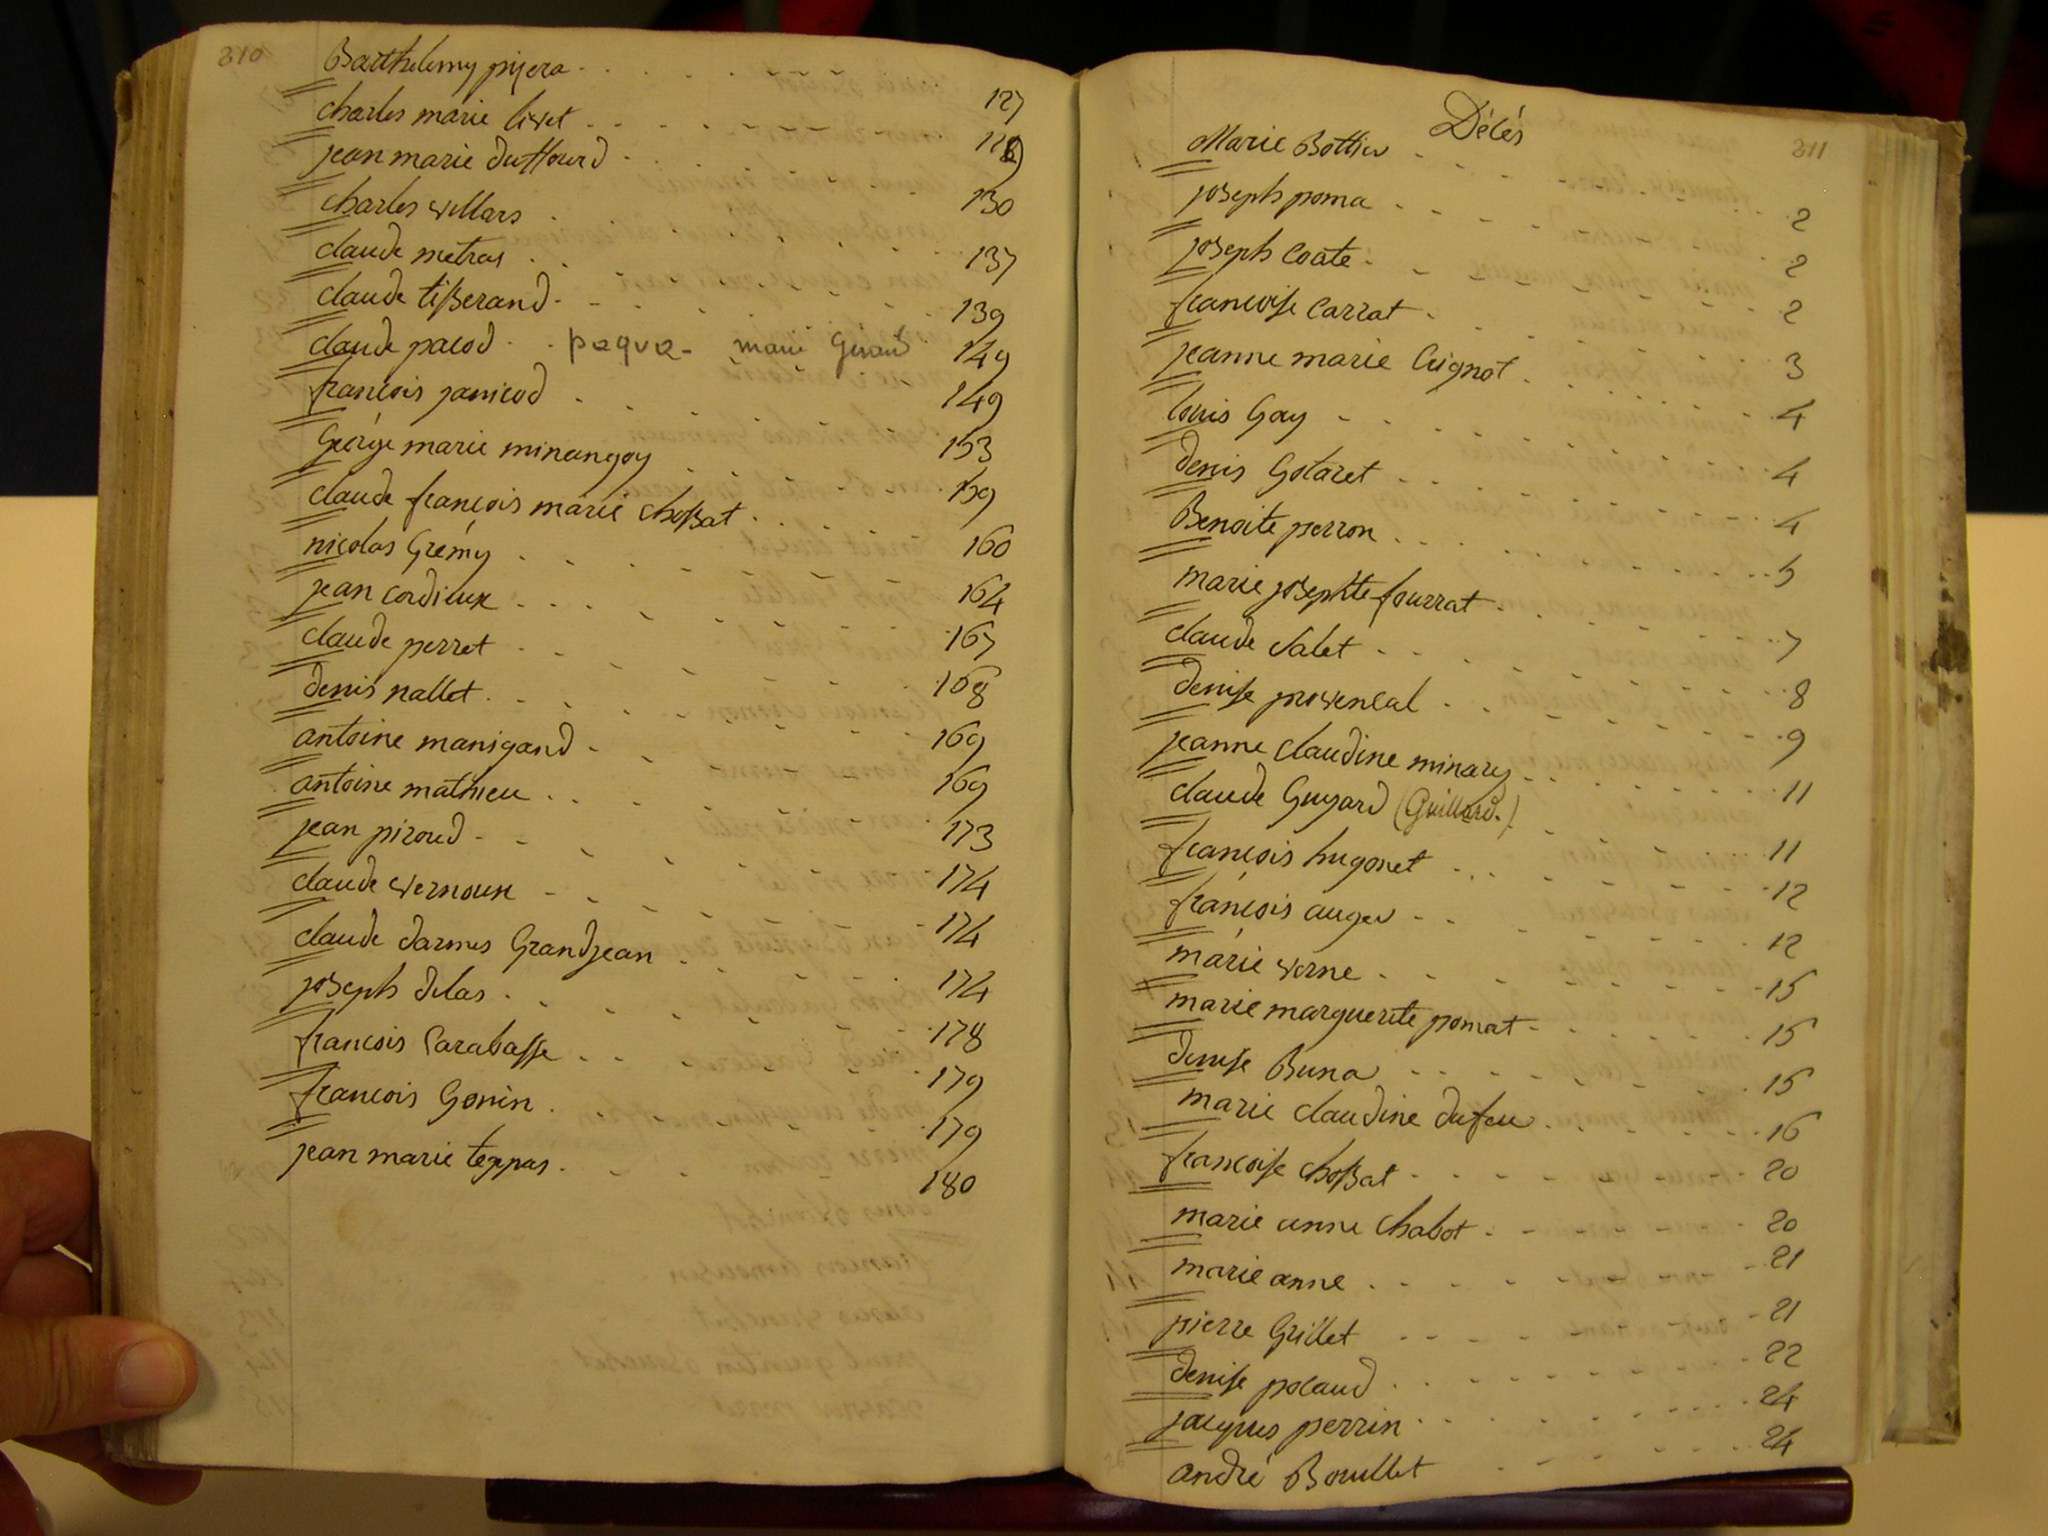 210
Barthelemy pijera 127
charles marie livet 118
jean marie duffourd 130
charles villars
claude metras 137
claude tisserand 139
claude pacod paqua - marie Girard 149
françois janicod 149
George marie minangoy 153
claude françois marie chossat 159
nicolas Grémy 160
jean cordieux 164
claude perret 167
denis nallet 168
antoine manigand 169
antoine mathieu 169
jean piroud 173
claude vernoux 174
claude darmes Grandjean 174
joseph delas 174
francois Carabasse 178
francois Gonin 179
jean marie teppas 179
180
Décés 211
Marie Bottier
joseph poma 2
joseph Coate 2
francoise Carrat 2
jeanne marie Cugnot 3
louis Gay 4
denis Gotaret 4
Benoite perron 4
marie josephte fourrat 5
claude Salet 7
denise provencal 8
jeanne claudine minary 9
claude Guyard (Guillard.) 11
françois hugonet 11
françois auger 12
marie verne 12
marie marguerite pomat 15
denise Buna 15
marie claudine dufeu 15
francoise chossat 16
marie anne Chabot 20
marie anne 20
pierre Grillet 21
denise pocaud 21
jacques perrin 22
andré Bouillet 24
24